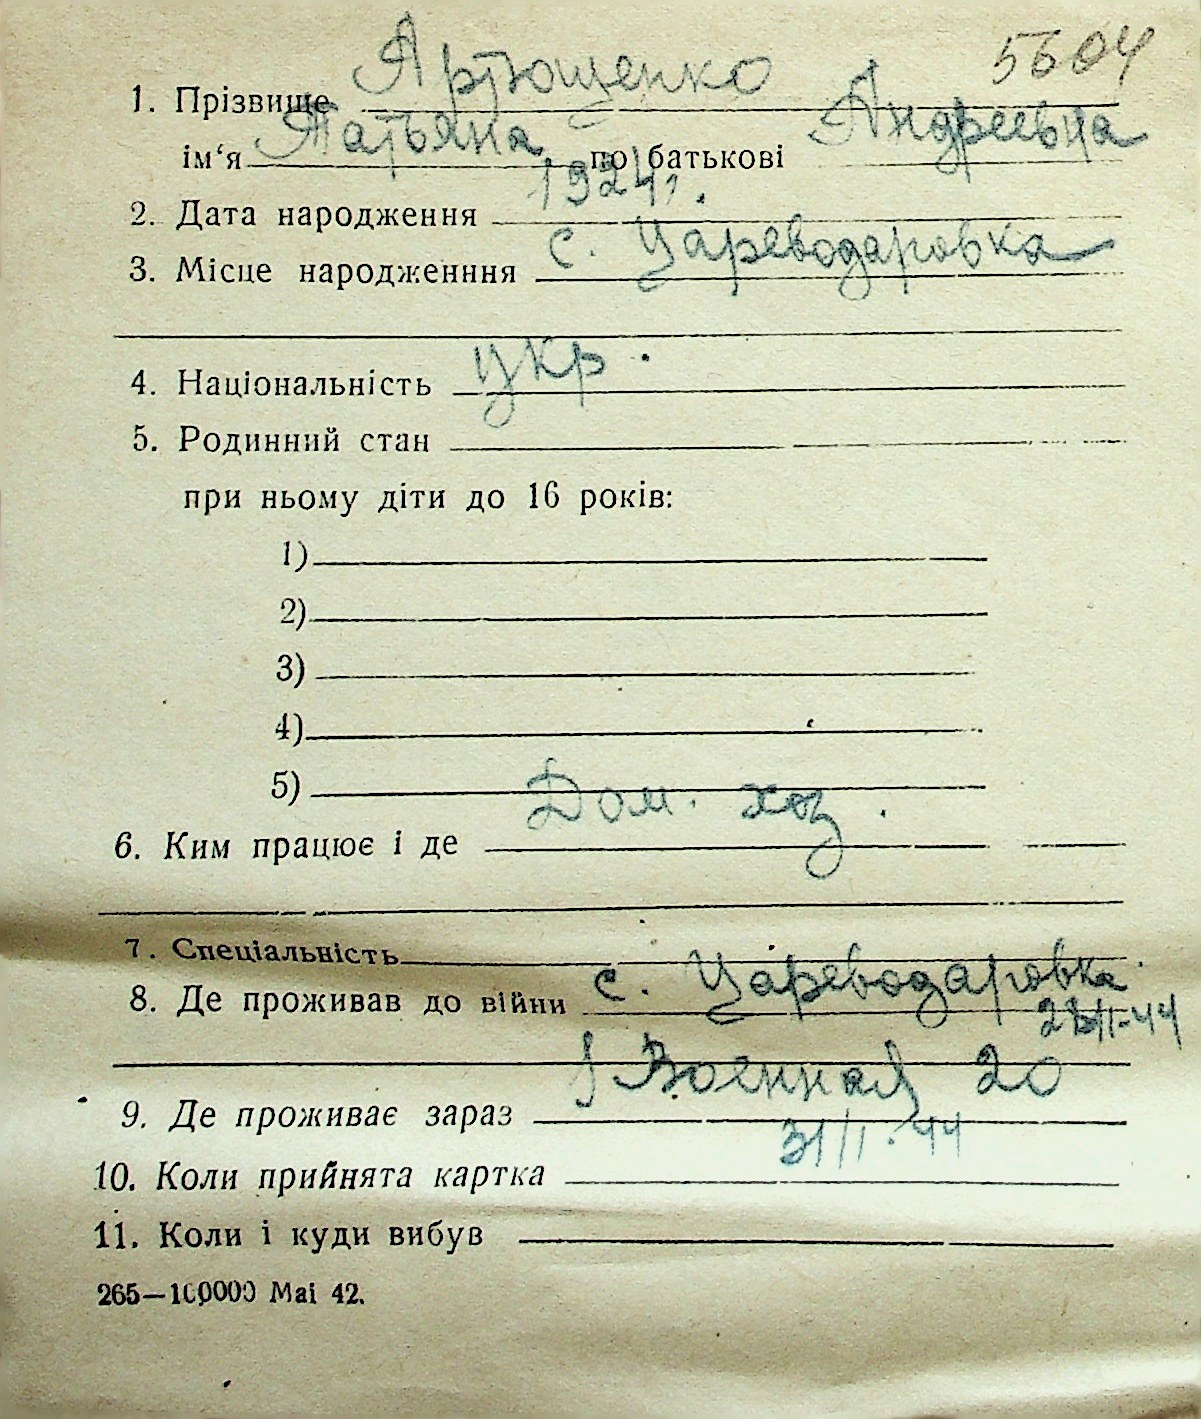 5604
1. Прізвище Артющенко
ім‘я Татьяна по батькові Андреевна
2. Дата народження 1924 г.
3. Місце народженння с. Цареводаровка
4. Національність укр.
5. Родинний стан
при ньому діти до 16 років:
1)
2)
3)
4)
5)
6. Ким працює і де Дом. хоз.
7. Спеціальність
8. Де проживав до війни с. Цареводаровка
9. Де проживає зараз Военная 20
10. Коли прийнята картка 31/I.44
11. Коли і куди вибув
265—100000 Mai 42.